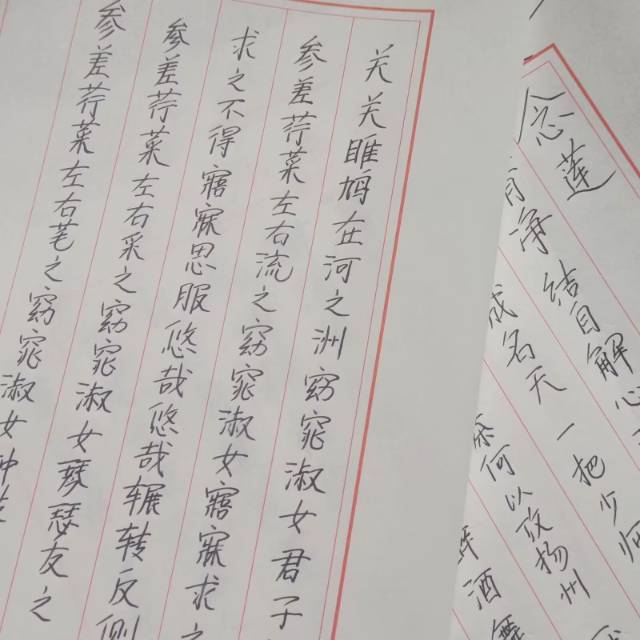 关关雎鸠在河之洲窈窕淑女君子
参差荇菜左右流之窈窕淑女寤寐求之
求之不得寤寐思服悠哉悠哉辗转反侧
参差荇菜左右采之窈窕淑女琴瑟友之
参差荇菜左右芼之窈窕淑女钟
念莲
净结自解心
名天一把少师
何以放扬州
酒